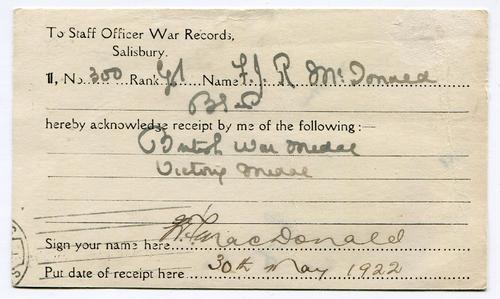 To Staff Officer War Records,
Salisbury.
I, No. 300 Rank Cpl Name F. J. R McDonald
BSAP
hereby acknowledge receipt by me of the following :—
British War Medal
Victory Medal
Sign your name here MacDonald
Put date of receipt here 30th May 1922